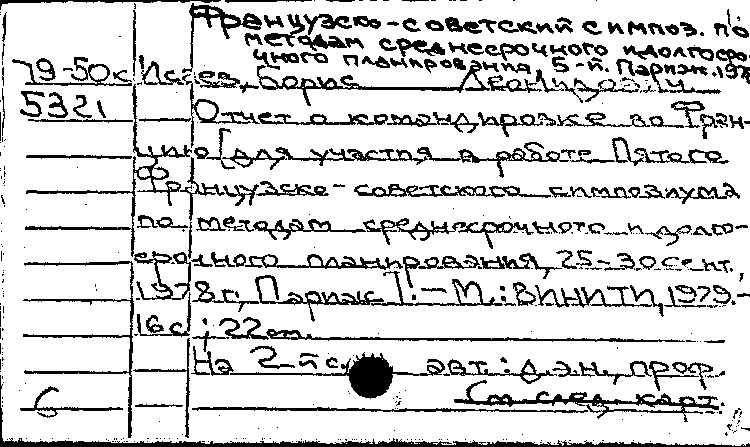 Французско-советский симпоз. по
методам среднесрочного и долгосро-
чного планирования, 5-й. Париж. 197
79-50к Исаев, Борис Леонидович.
5321 Отчет о командировке во Фран-
цию [для участия в работе Пятого
Французско-советского симпозиума
по методам среднесрочного и долго-
срочного планирования, 25-30 сент.,
1978 г., Париж]. - М.: ВИНИТИ, 1979.-
16с.; 22см.
На 2-й с. авт.: д.э.н., проф.
См. след. карт.